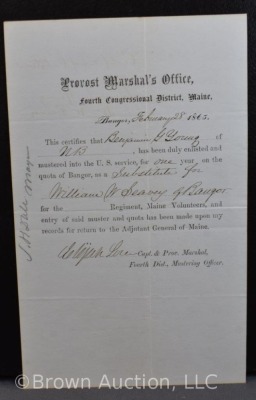 Provost Marshal's Office,
Fourth Congressional District, Maine,
Bangor, February 28 1865.
This certifies that Benjamin G Young of
N.B. , has been duly enlisted and
mustered into the U. S. service, for one year, on the
quota of Bangor, as a Substitute for
William W Seavey of Bangor
for the Regiment, Maine Volunteers, and
entry of said muster and quota has been made upon my
records for return to the Adjutant General of Maine.
Elijah Low Capt. & Prov. Marshal,
Fourth Dist., Mustering Officer.
Mayor
© Brown Auction, LLC